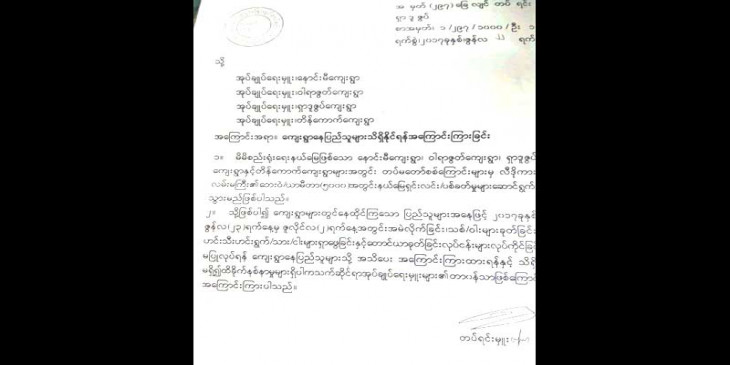 အ မှတ် (၂၉၇) ခြေ လျင် တပ် ရင်း
ရှာ ဒု ဇွပ်
စာအမှတ်၊ ၁ /၂၉၇ /၁၀၀၀ /ဦး ၁
ရက်စွဲ၊၂၀၁၇ခုနှစ်၊ဇွန်လ ၂၂ ရက်
သို့
အုပ်ချုပ်ရေးမှူး၊နောင်းမီကျေးရွာ
အုပ်ချုပ်ရေးမှူး၊ဝါရာဇွတ်ကျေးရွာ
အုပ်ချုပ်ရေးမှူး၊ရှာဒူဇွပ်ကျေးရွာ
အုပ်ချုပ်ရေးမှူး၊တိန်ကောက်ကျေးရွာ
အကြောင်းအရာ။ ကျေးရွာနေပြည်သူများသိရှိနိုင်ရန်အကြောင်းကြားခြင်း
၁။ မိမိစည်းရုံးရေးနယ်မြေဖြစ်သော နောင်းမီကျေးရွာ၊ ဝါရာဇွတ်ကျေးရွာ၊ ရှာဒူဇွပ်
ကျေးရွာနှင့်တိန်ကောက်ကျေးရွာများအတွင်း တပ်မတော်စစ်ကြောင်းများမှ လီဒိုကား
လမ်းမကြီး၏ဘေးဝဲ/ယာမီတာ(၅၀၀)အတွင်းနယ်မြေရှင်းလင်း/ပစ်ခတ်မှုများဆောင်ရွက်
သွားမည်ဖြစ်ပါသည်။
၂။ သို့ဖြစ်ပါ၍ ကျေးရွာများတွင်နေထိုင်ကြသော ပြည်သူများအနေဖြင့် ၂၀၁၇ခုနှစ်
ဇွန်လ(၂၃)ရက်နေ့မှ ဇူလိုင်လ(၂)ရက်နေ့အတွင်းအမဲလိုက်ခြင်း၊သစ်/ဝါးများခုတ်ခြင်း
ဟင်းသီးဟင်းရွက်/သား/ငါးများရှာဖွေခြင်းနှင့်တောင်ယာခုတ်ခြင်းလုပ်ငန်းများလုပ်ကိုင်ခြင်
မပြုလုပ်ရန် ကျေးရွာနေပြည်သူများသို့ အသိပေး အကြောင်းကြားထားရန်နှင့် သိရှိ
မရှိ၍ထိခိုက်နစ်နာမှုများရှိပါကသက်ဆိုင်ရာအုပ်ချုပ်ရေးမှူးများ၏တာဝန်သာဖြစ်ကြော
အကြောင်းကြားပါသည်။
တပ်ရင်းမှူး